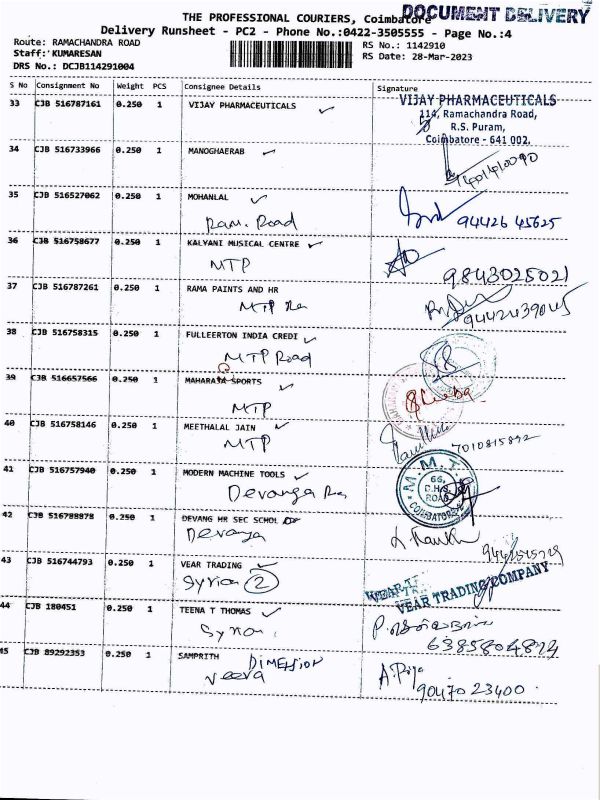 DOCUMENT DELIVERY
THE PROFESSIONAL COURIERS, Coimbatore
Delivery Runsheet - PC2 - Phone No.:0422-3505555 - Page No.:4
Route: RAMACHANDRA ROAD
RS No.: 1142910
Staff: KUMARESAN
RS Date: 28-Mar-2023
DRS No.: DCJB114291004
S No Consignment No Weight PCS Consignee Details Signature
33 CJB 516787161 0.250 1 VIJAY PHARMACEUTICALS
VIJAY PHARMACEUTICALS
114, Ramachandra Road,
R.S. Puram,
Coimbatore - 641 002.
34 CJB 516733966 0.250 1 MANOGHAERAB
35 CJB 516527062 0.250 1 MOHANLAL
Ram. Road 94426 45625
36 CJB 516758677 0.250 1 KALYANI MUSICAL CENTRE
MTP 9843025021
37 CJB 516787261 0.250 1 RAMA PAINTS AND HR
MTP Rn
38 CJB 516758315 0.250 1 FULLEERTON INDIA CREDI
MTP Road
39 CJB 516657566 0.250 1 MAHARAJA SPORTS
MTP
40 CJB 516758146 0.250 1 MEETHALAL JAIN
MTP 7010815892
41 CJB 516757940 0.250 1 MODERN MACHINE TOOLS
Devanga Rn
M.M.T
66,
D.H.S.
ROAD
COIMBATORE
42 CJB 516788878 0.250 1 DEVANG HR SEC SCHOL
Devanga
43 CJB 516744793 0.250 1 VEAR TRADING
Syrian 2
VEAR TRADING COMPANY
44 CJB 180451 0.250 1 TEENA T THOMAS
Syrian
45 CJB 89292353 0.250 1 SAMPRITH DIMENSION
Veera A. Priya
90470 23400